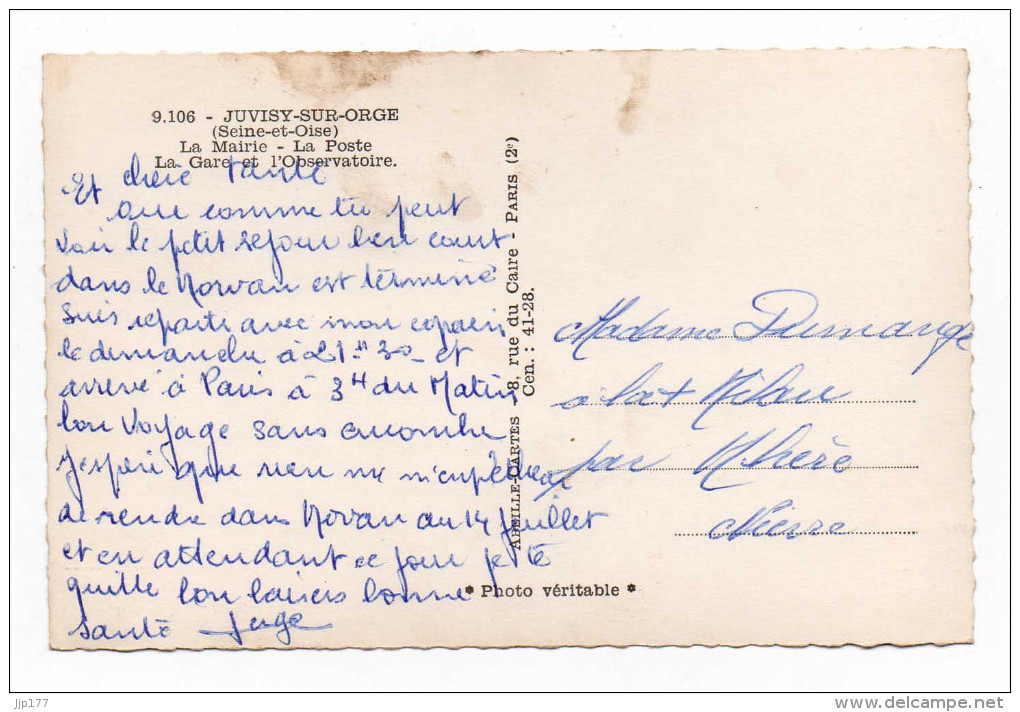 9.106 - JUVISY-SUR-ORGE
(Seine-et-Oise)
La Mairie - La Poste
La Gare et l'Observatoire.
Et chère Tante
comme tu peut
voir le petit séjour bien court
dans le Morvan est terminé
Suis reparti avec mon copain
le dimanche à 21 H 30 et
arrivé à Paris à 3 H du Matin
bon voyage sans encombre
J'espère que rien me m'empêchera
de rendre dans Morvan au 14 Juillet
et en attendant ce jour je te
quitte bon baisers bonne
santé
ABEILLE-CARTES - 8, rue du Caire - PARIS (2e)
Cen. : 41-28.
Madame
à
par
Nièvre
* Photo véritable *
jjp177
www.delcampe.net